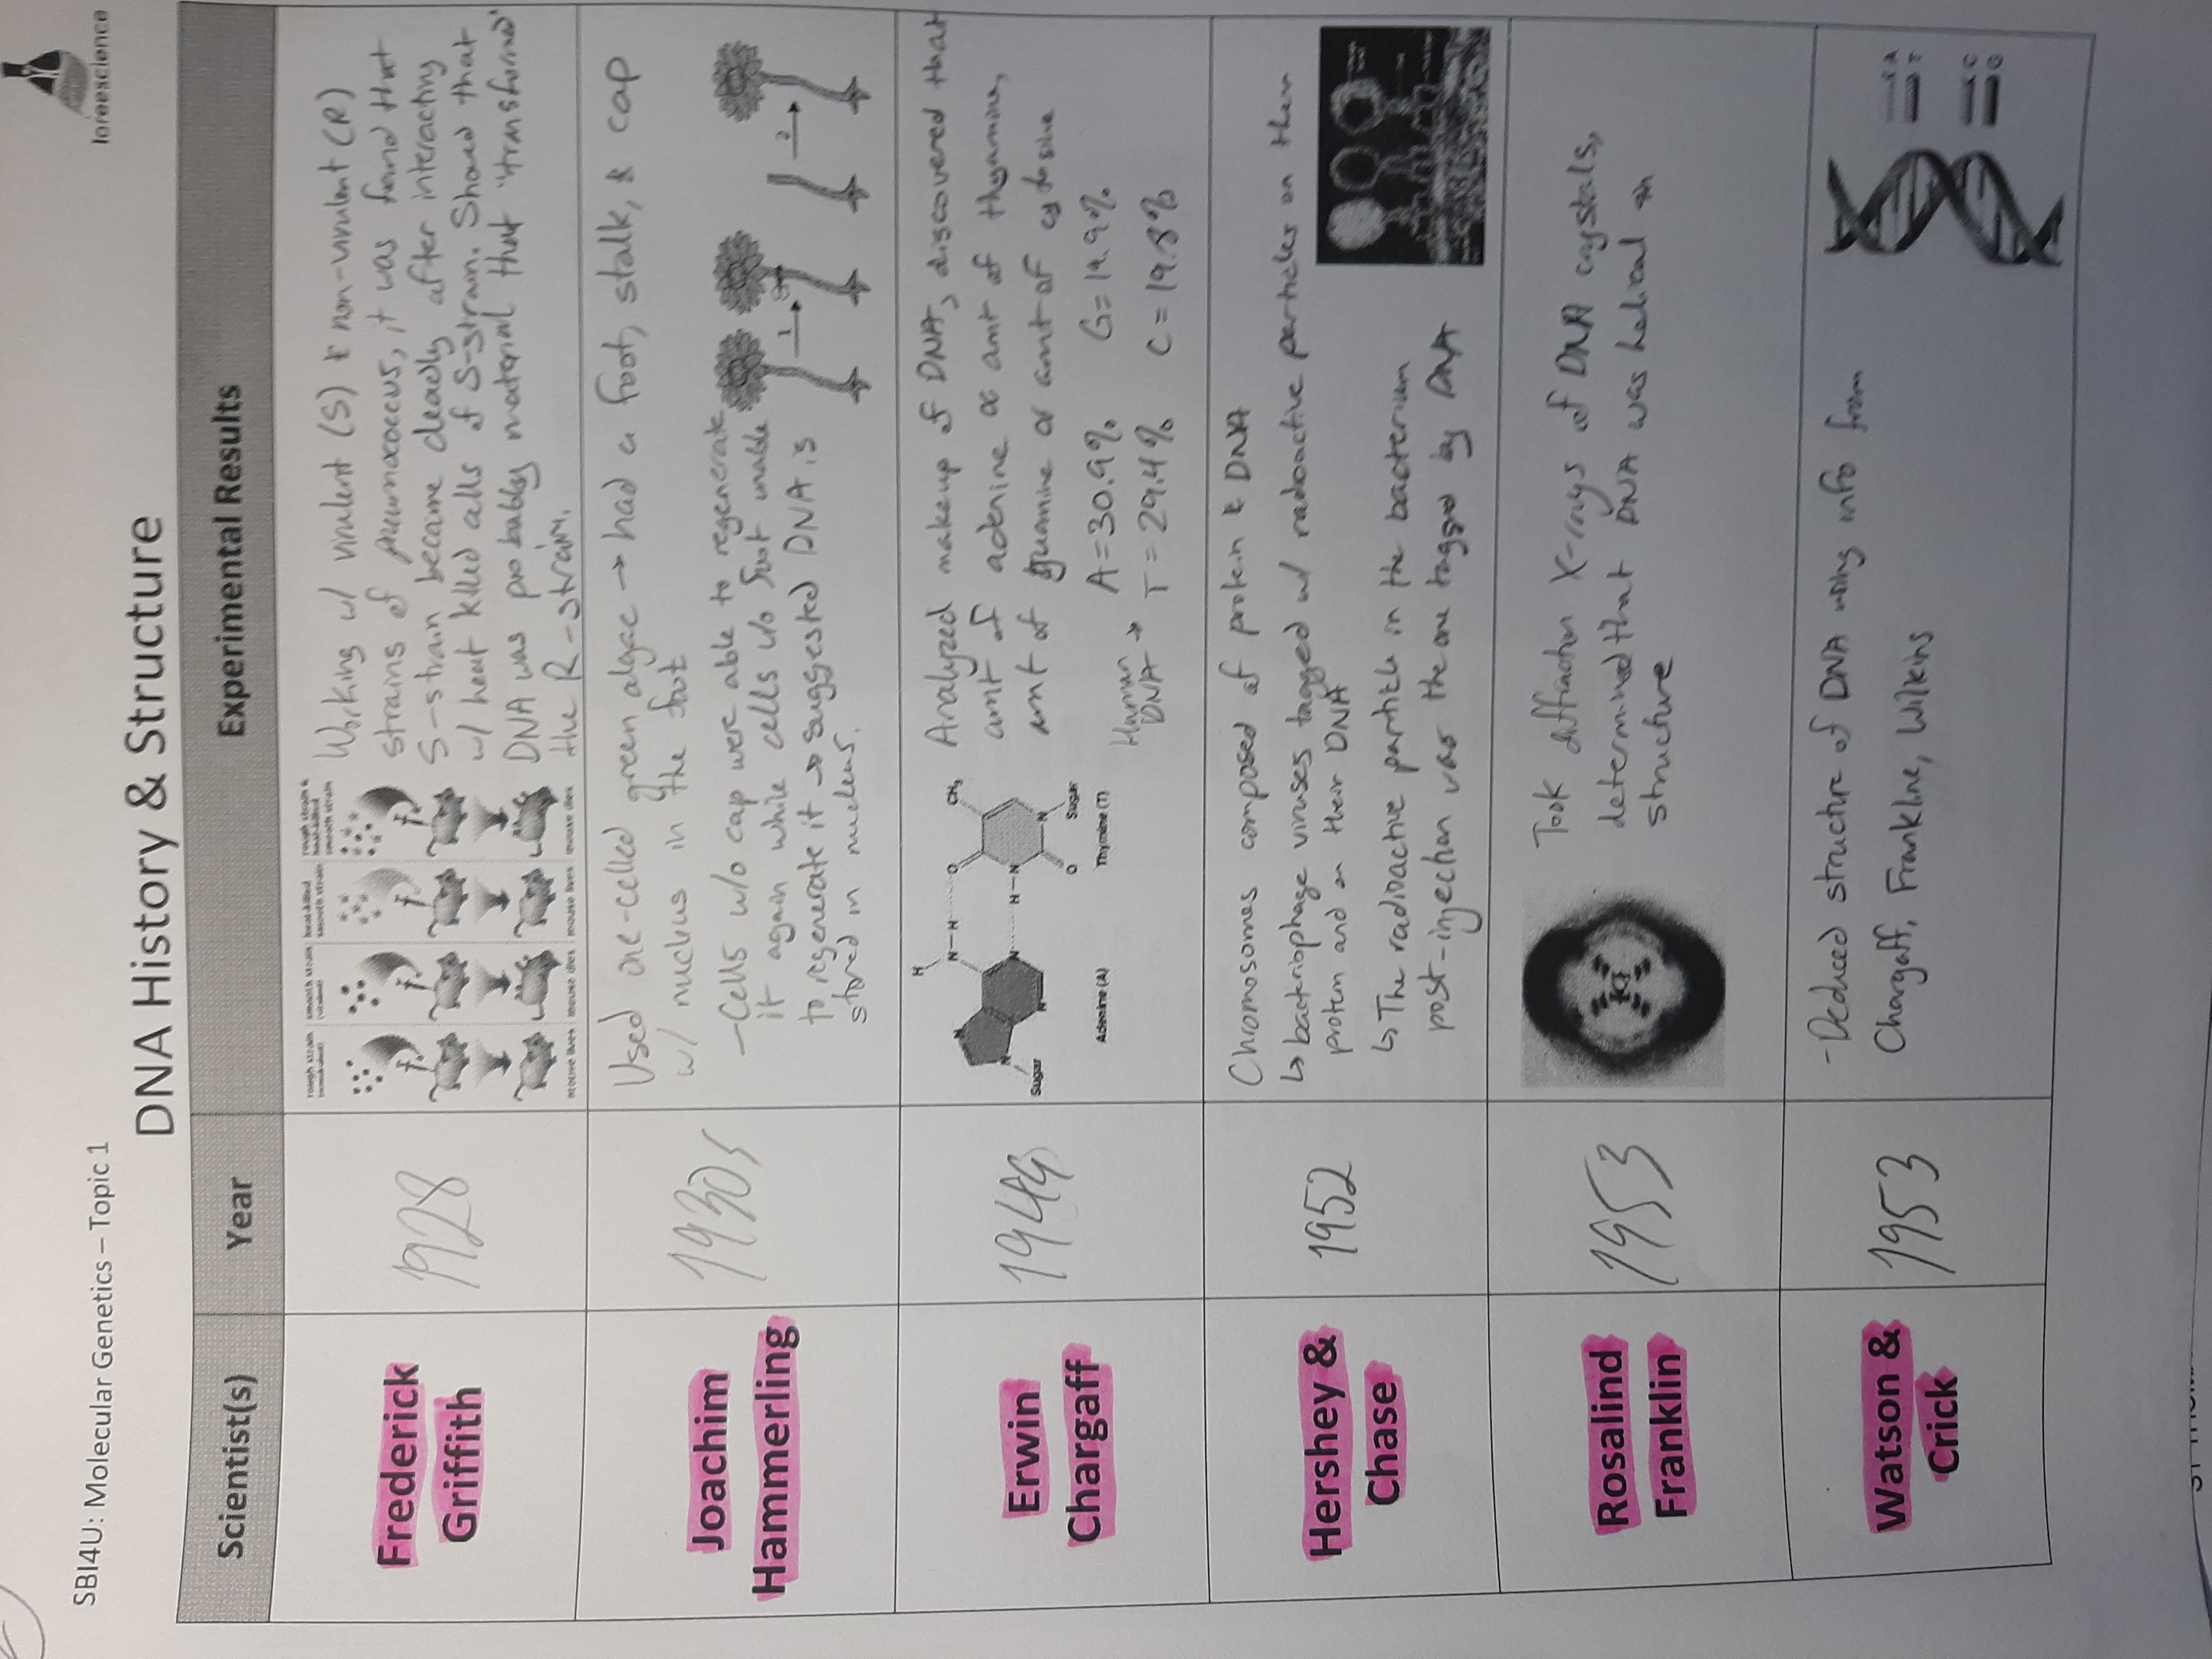 SBI4U: Molecular Genetics – Topic 1
loreescience
DNA History & Structure
Scientist(s) Year Experimental Results
Frederick
Griffith
1928
rough strain
(nonvirulent)
smooth strain
(virulent)
heat-killed
smooth strain
rough strain &
heat-killed
smooth strain
mouse lives mouse dies mouse lives mouse dies
Working w/ virulent (S) & non-virulent (R)
strains of pneumococcus, it was found that
S-strain became deadly after interacting
w/ heat killed cells of S-strain. Showed that
DNA was probably material that "transformed"
the R-strain.
Joachim
Hammerling
1930s
Used one-celled green algae → had a foot, stalk, & cap
w/ nucleus in the foot
- Cells w/o cap were able to regenerate
it again while cells w/o foot unable
to regenerate it → suggested DNA is
stored in nucleus.
1 2
Erwin
Chargaff
1949
H
N H O CH3
N
N N H N
Sugar N N
O Sugar
Adenine (A) Thymine (T)
Analyzed makeup of DNA, discovered that
amt of adenine ∝ amt of thyamine,
amt of guanine ∝ amt of cytosine
Human
DNA →
A = 30.9% G = 19.9%
T = 29.4% C = 19.8%
Hershey &
Chase
1952
Chromosomes composed of protein & DNA
↳ bacteriophage viruses tagged w/ radioactive particles on their
protein and on their DNA
↳ The radioactive particle in the bacterium
post-injection was the one tagged by DNA
Rosalind
Franklin
1953
Took diffraction X-rays of DNA crystals,
determined that DNA was helical in
structure
Watson &
Crick
1953
- Deduced structure of DNA using info from
Chargaff, Frankline, Wilkins
A
T
C
G